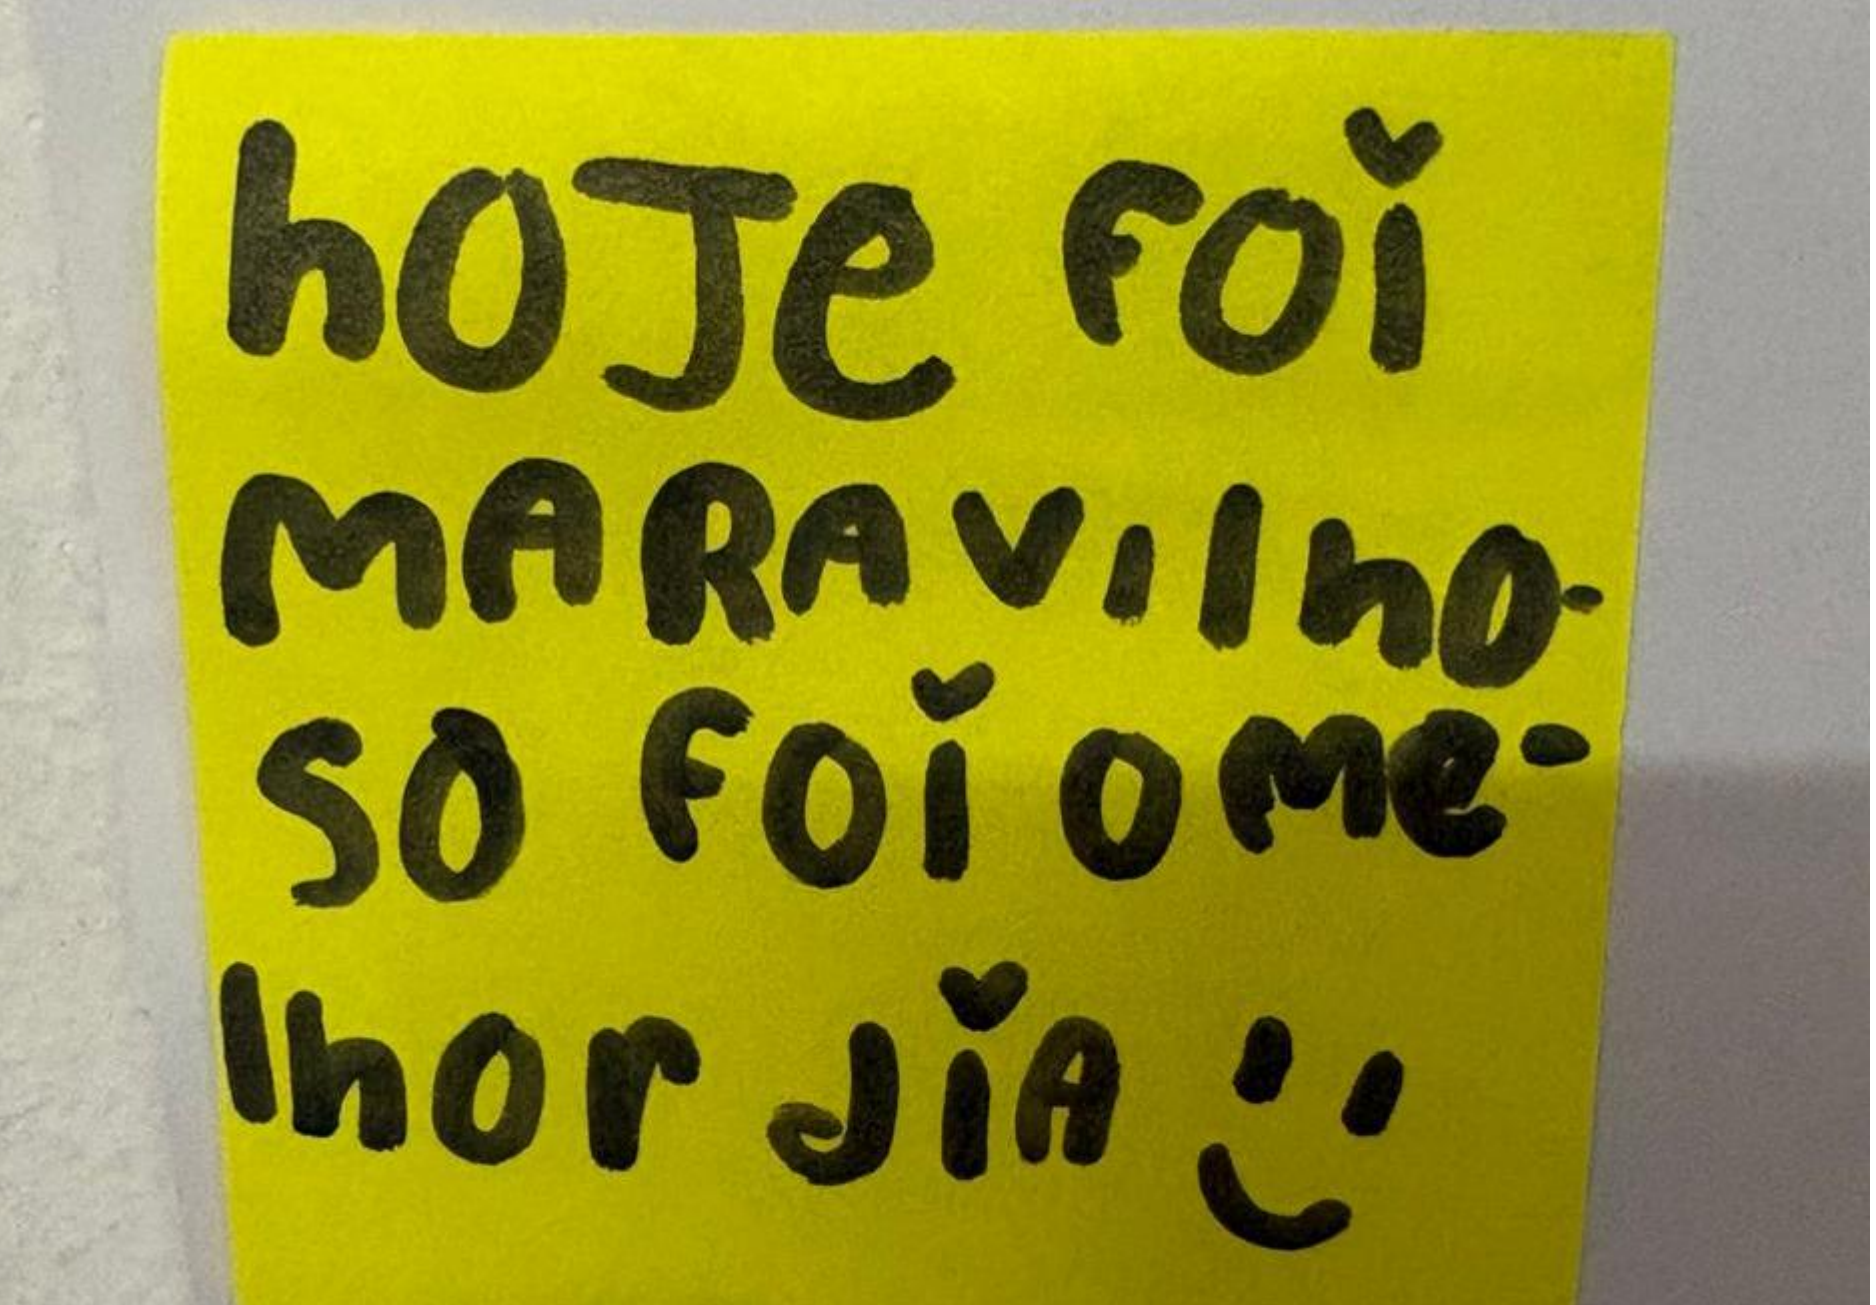 hoJe foi
MARAVIlhO-
SO foi o me-
lhor dia